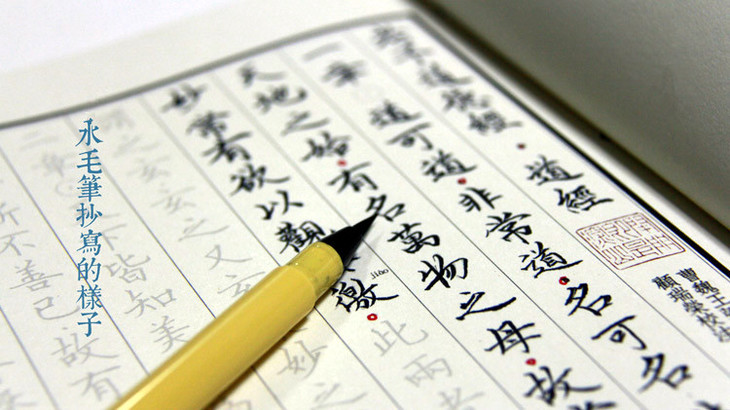 道德經·道經
一章 道可道 非常道 名可名
天地之始 有名萬物之母 故
妙常有欲以觀徼 此兩者
jiào
謂之玄玄之又玄 妙之
二章 下皆知美
斯不善已 故有
水毛筆抄寫的樣子